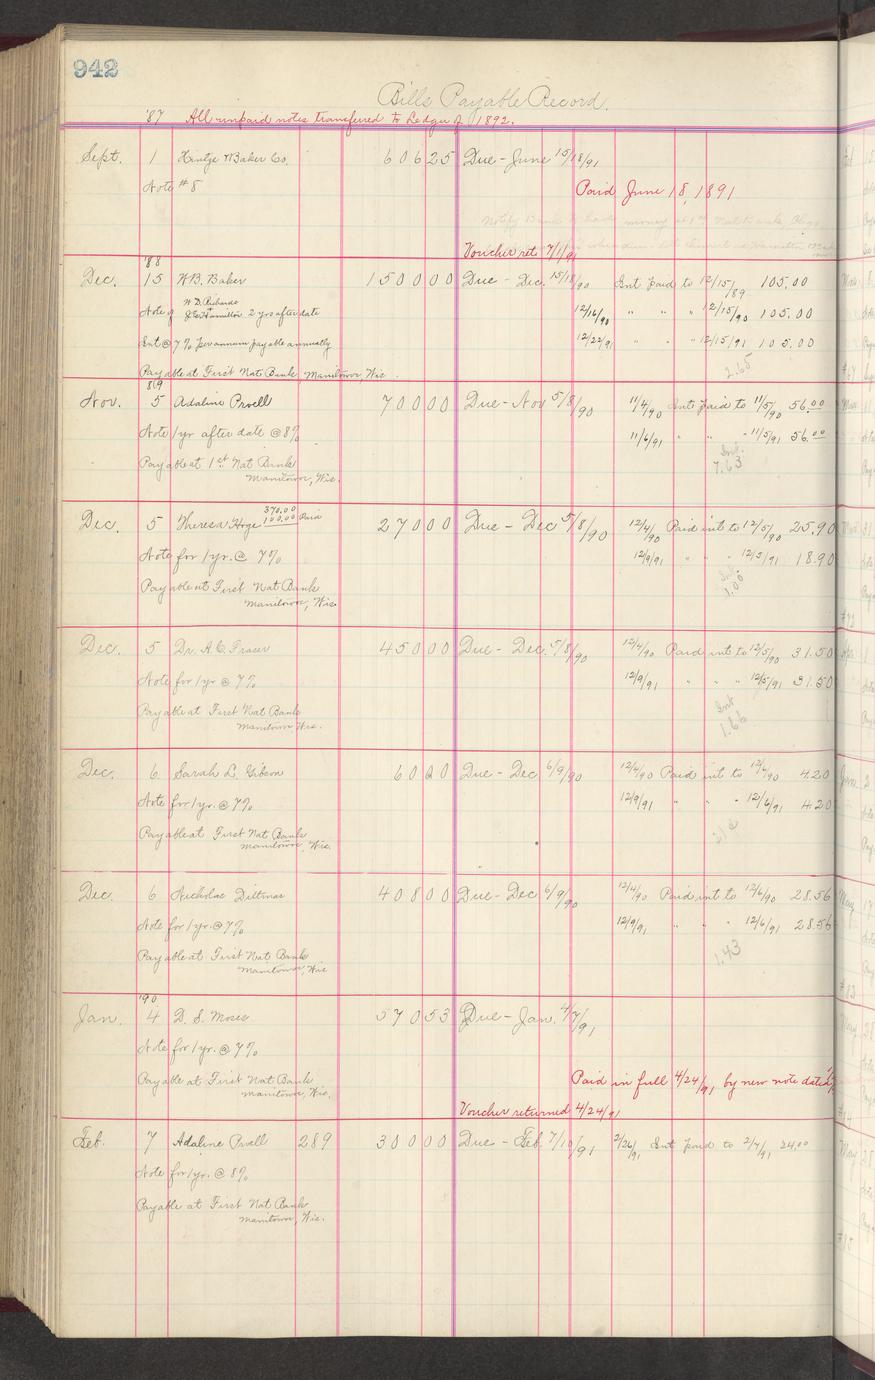 942
Bills Payable Record.
'87 All unpaid notes transferred to Ledger of 1892.
Sept. 1 Hintze & Baker Co. 606 25 Due - June 15/18/91
Note #8 Paid June 18, 1891
Notify Bank money at 1st Nat Bank, Chgo
Voucher ret. 7/1/91
'88
Dec. 15 W.B. Baker 1500 00 Due - Dec. 15/18/90 Int paid to 12/15/89 105.00
Note of W.D. Richards
J.E. Hamilton 2 yrs after date 12/16/90 " " " 12/15/90 105.00
Int @ 7% per annum payable annually 12/22/91 " " " 12/15/91 105.00
Payable at First Nat Bank Manitowoc, Wis. 2.65
'89
Nov. 5 Adaline Prvell 700 00 Due - Nov 5/8/90 11/4/90 Int paid to 11/5/90 56.00
Note 1 yr after date @ 8% 11/6/91 " " " 11/5/91 56.00
Pay able at 1st Nat Bank Int. 7.63
Manitowoc, Wis.
370.00
Dec. 5 Theresa Hoge 100.00 Paid 270 00 Due - Dec 5/8/90 12/4/90 Paid int to 12/5/90 25.90
Note for 1 yr. @ 7% 12/9/91 " " " 12/5/91 18.90
Payable at First Nat Bank Int. 1.00
Manitowoc, Wis
Dec. 5 Dr. A.C. Fraser 450 00 Due - Dec. 5/8/90 12/4/90 Paid int to 12/5/90 31.50
Note for 1 yr @ 7% 12/9/91 " " " 12/5/91 31.50
Payable at First Nat Bank Int 1.66
Manitowoc Wis.
Dec. 6 Sarah L. Gibson 60 00 Due - Dec 6/9/90 12/4/90 Paid int to 12/6/90 4.20
Note for 1 yr. @ 7% 12/9/91 " " " 12/6/91 4.20
Payable at First Nat Bank
Manitowoc, Wis.
Dec. 6 Nicholas Dittmar 408 00 Due - Dec 6/9/90 12/4/90 Paid int to 12/6/90 28.56
Note for 1 yr. @ 7% 12/9/91 " " " 12/6/91 28.56
Payable at First Nat Bank 1.43
Manitowoc, Wis
'90
Jan. 4 D. S. Moses 570 53 Due - Jan. 4/7/91
Note for 1 yr. @ 7%
Payable at First Nat Bank Paid in full 4/24/91 by new note dated
Manitowoc, Wis.
Voucher returned 4/24/91
Feb. 7 Adaline Prvell 289 300 00 Due - Feb. 7/10/91 2/26/91 Int paid to 2/7/91 24.00
Note for 1 yr. @ 8%
Payable at First Nat Bank
Manitowoc, Wis.